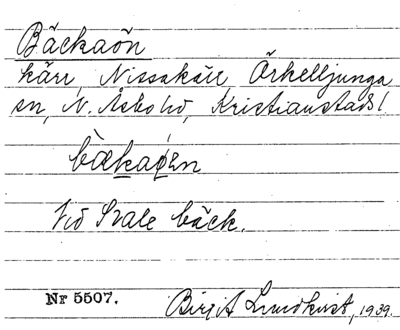 Bäckaön
kärr, Nissakärr Örkelljunga
sn, N. Åsbo hd, Kristianstads l
bäkaøen
Vid Svale bäck.
Nr 5507.
Birgit Lundkvist, 1939.